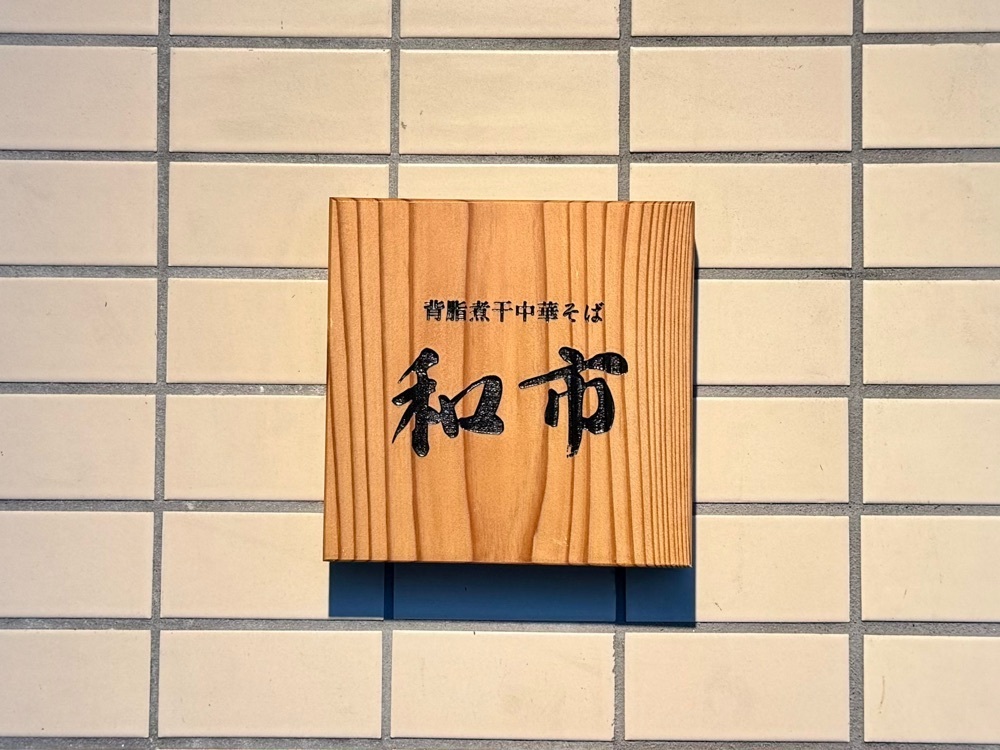 背脂煮干中華そば
和市